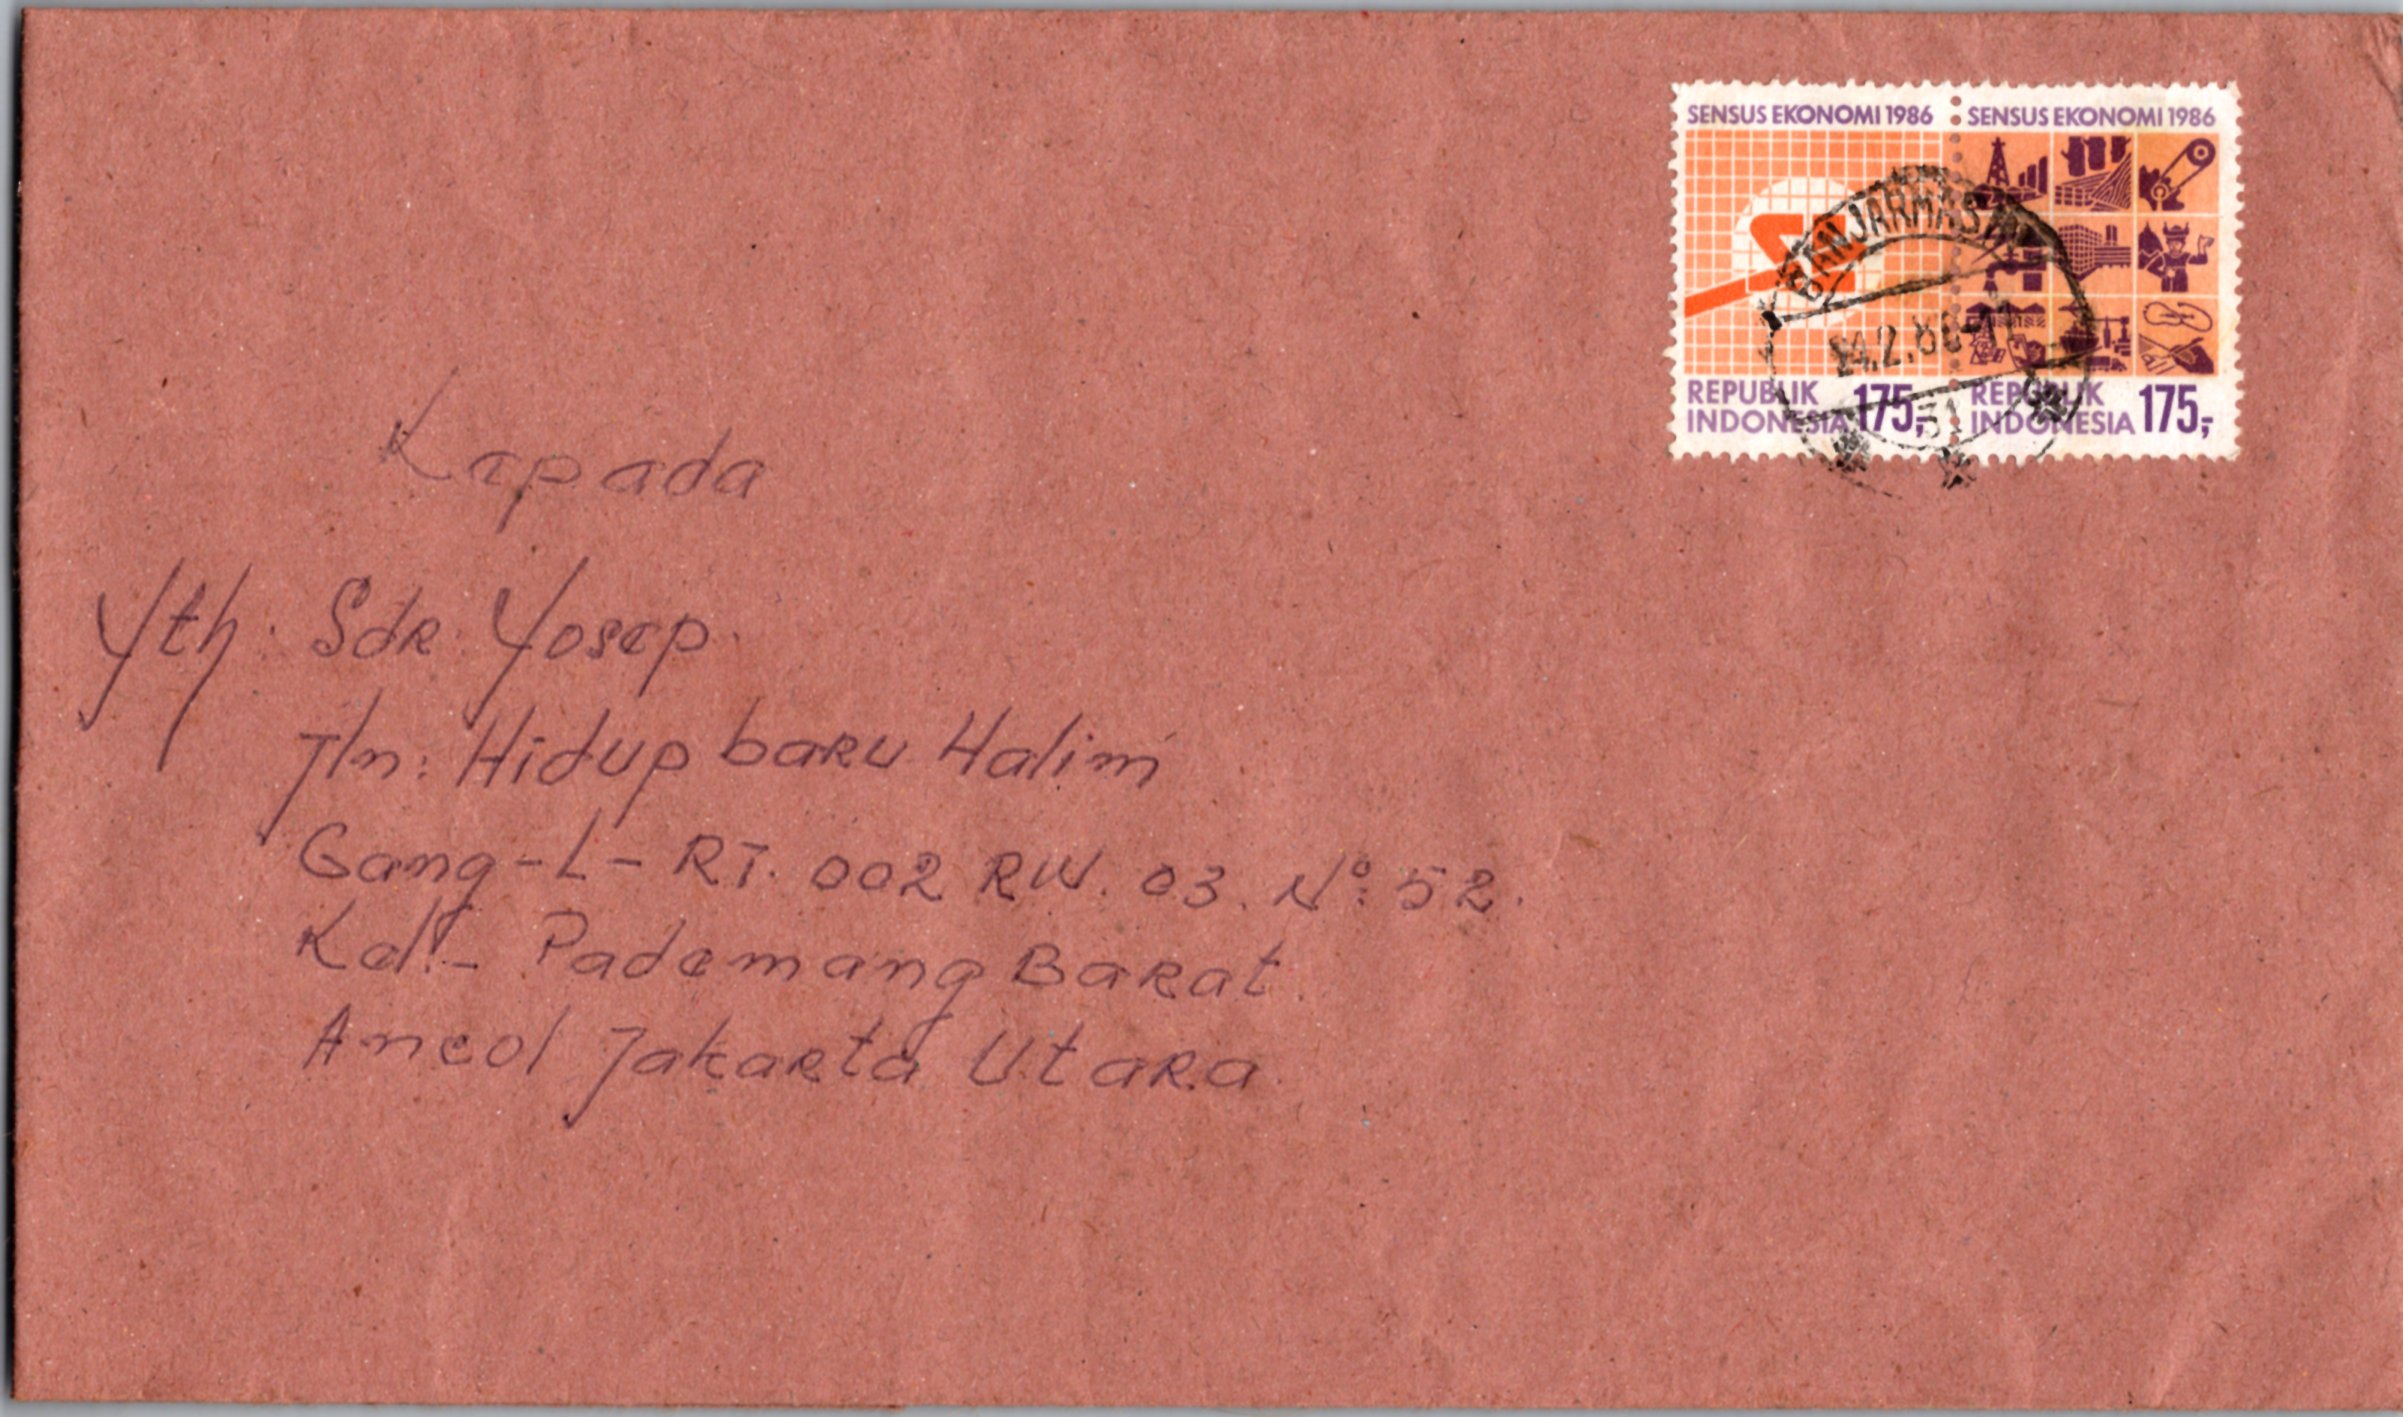 SENSUS EKONOMI 1986
SENSUS EKONOMI 1986
REPUBLIK
INDONESIA 175,-
REPUBLIK
INDONESIA 175,-
BANJARMASIN
31
Kepada
Yth. Sdr. Yosep.
Jln: Hidup baru Halim
Gang-L- RT. 002 RW. 03. No: 52.
Kel:- Pademang Barat.
Ancol Jakarta Utara.